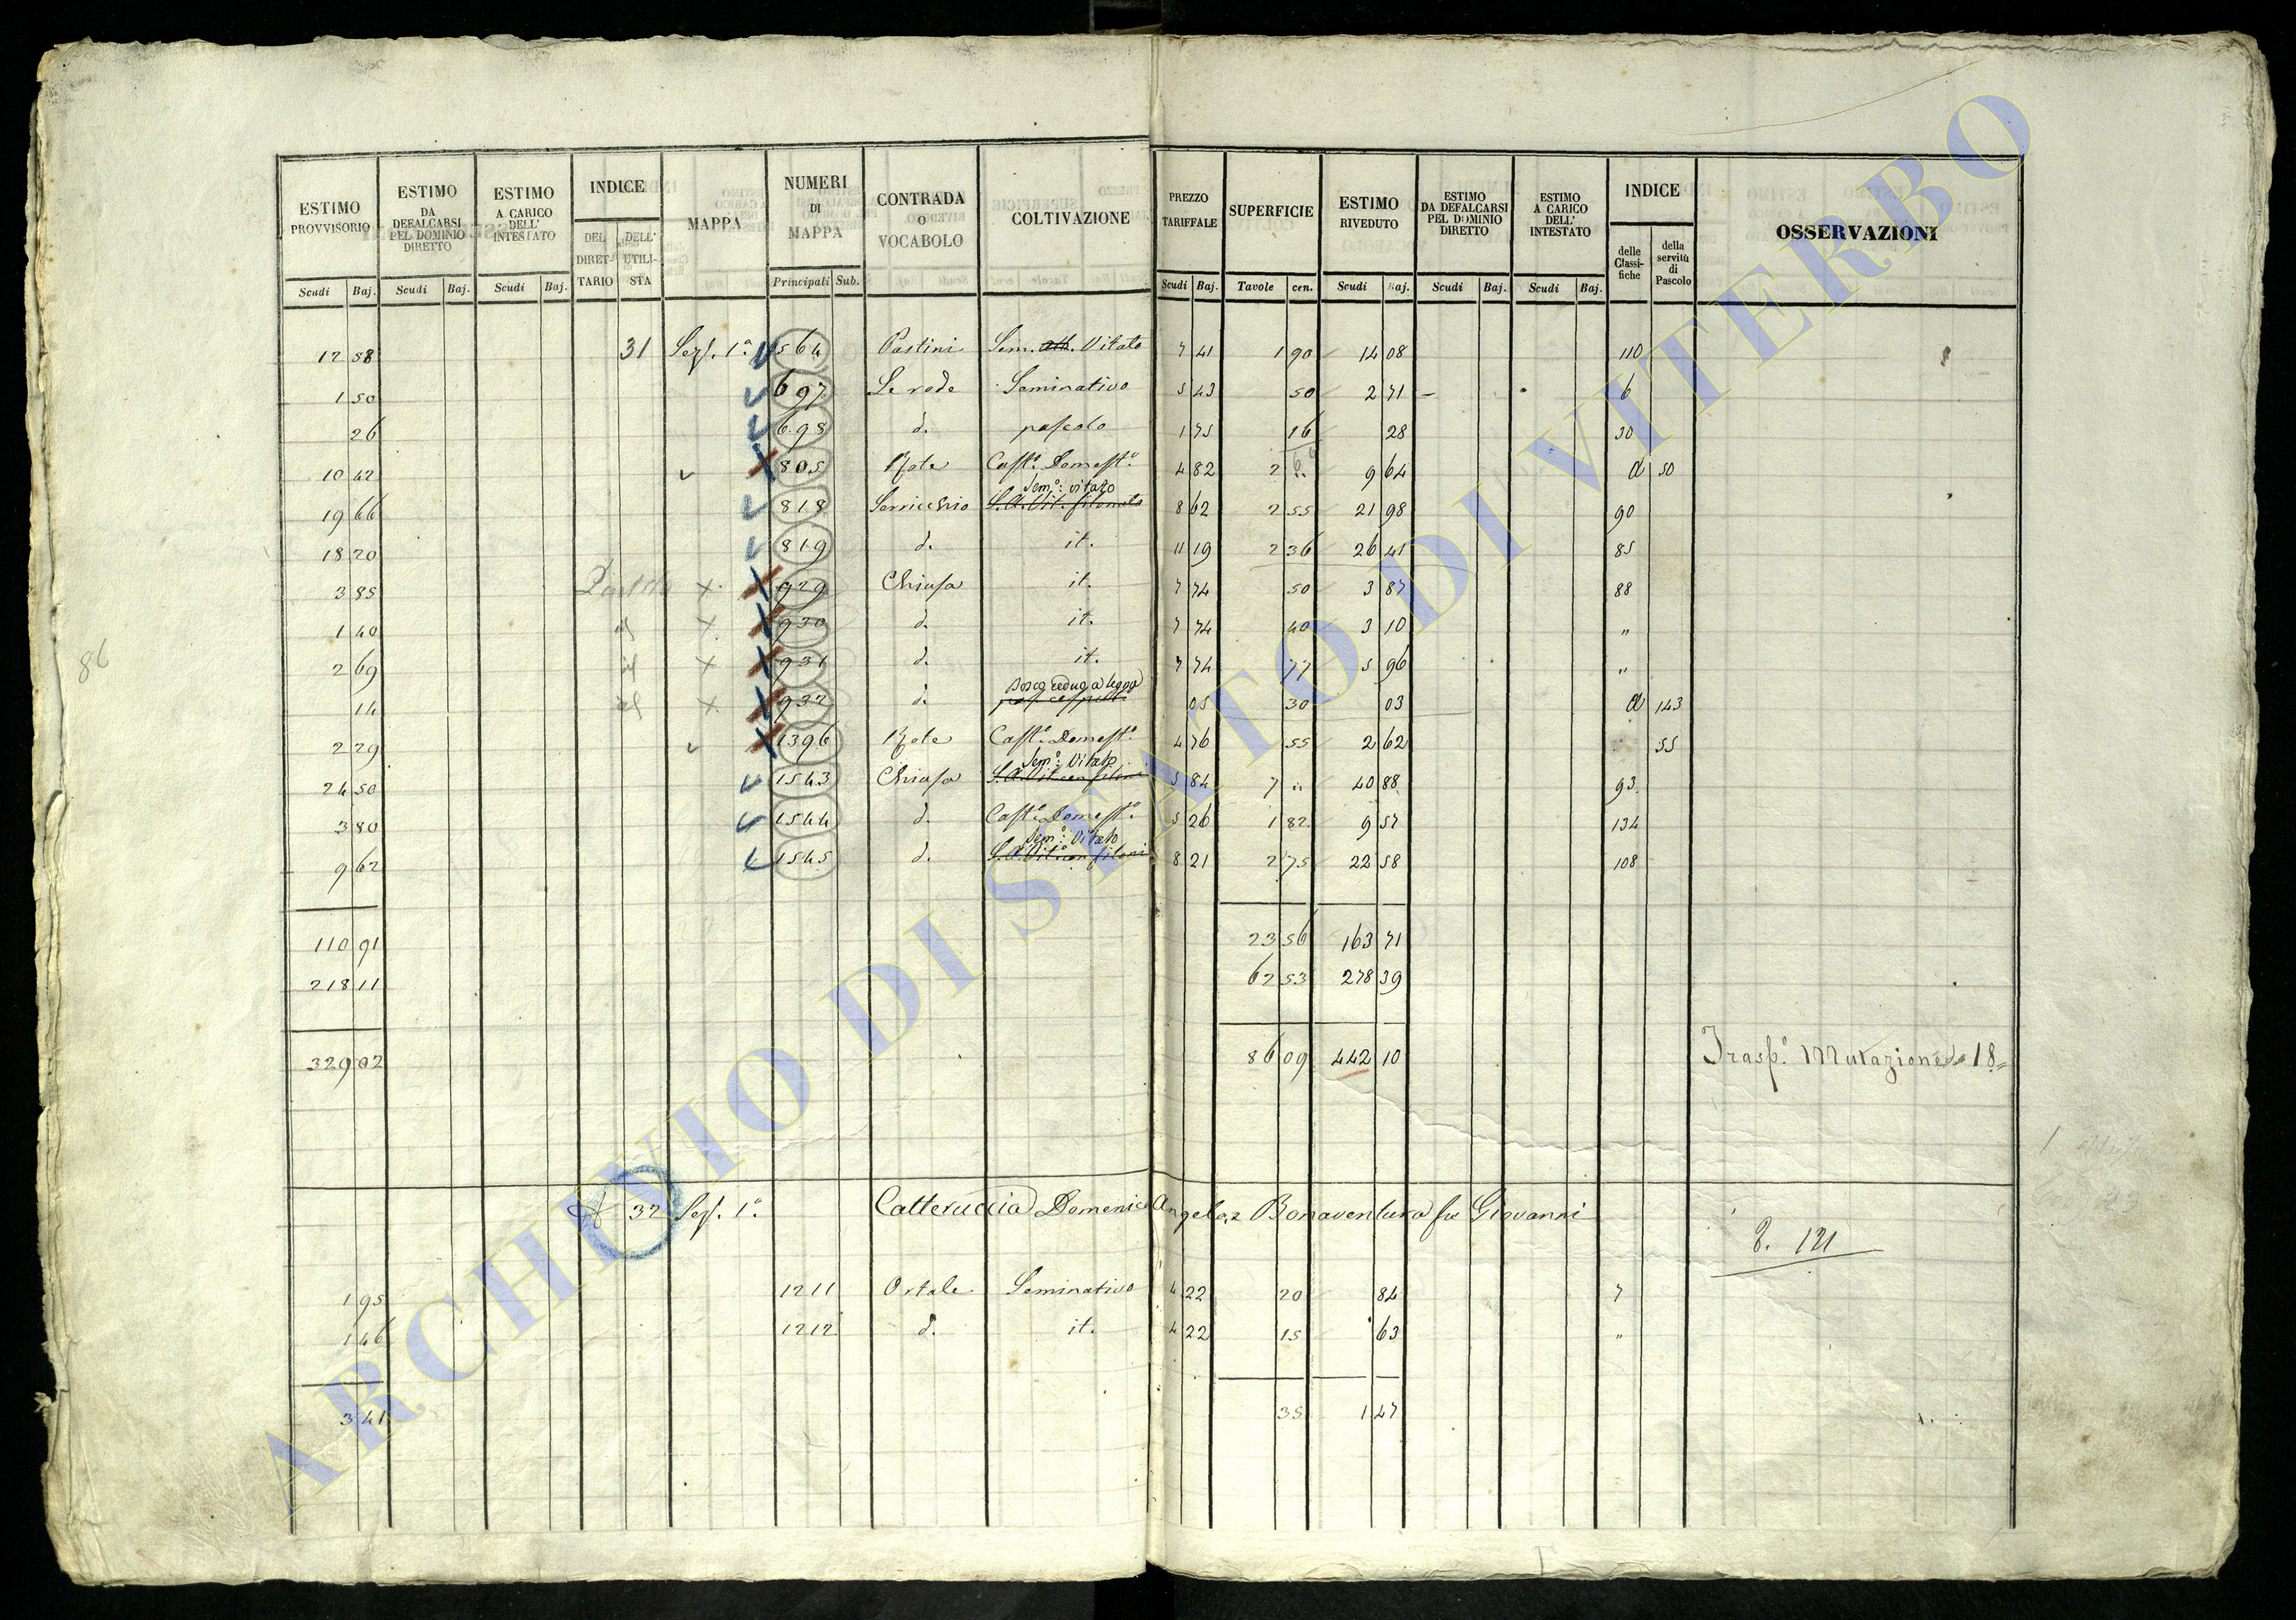 ESTIMO PROVVISORIO | ESTIMO DA DEFALCARSI PEL DOMINIO DIRETTO | ESTIMO A CARICO DELL' INTESTATO | INDICE | MAPPA | NUMERI DI MAPPA | CONTRADA O VOCABOLO | COLTIVAZIONE | PREZZO TARIFFALE | SUPERFICIE | ESTIMO RIVEDUTO | ESTIMO DA DEFALCARSI PEL DOMINIO DIRETTO | ESTIMO A CARICO DELL' INTESTATO | INDICE | OSSERVAZIONI
DEL DIRETTARIO | DELL' UTILISTA | delle Classifiche | della servitù di Pascolo
Scudi | Baj. | Scudi | Baj. | Scudi | Baj. | Principali | Sub. | Scudi | Baj. | Tavole | cen. | Scudi | Baj. | Scudi | Baj. | Scudi | Baj.
12 58 | 31 | Sez. 1a | 564 | Pastini | Sem. Vitato | 7 41 | 1 90 | 14 08 | 110
1 50 | 697 | Le rode | Seminativo | 5 43 | 50 | 2 71 | 6
26 | 698 | d. | pascolo | 1 75 | 16 | 28 | 30
10 42 | 805 | Cast.o Domest.o | 4 82 | 2 .. | 9 64 | d 50
19 66 | 818 | Serricchio | Sem.o: vitato S.A. Vit. filonato | 8 62 | 2 55 | 21 98 | 90
18 20 | 819 | d. | it. | 11 19 | 2 36 | 26 41 | 85
3 85 | x | 929 | Chiusa | it. | 7 74 | 50 | 3 87 | 88
1 40 | x | 930 | d. | it. | 7 74 | 40 | 3 10 | "
2 69 | x | 931 | d. | it. | 7 74 | 77 | 5 96 | "
14 | x | 932 | d. | Bosco ceduo a legna | 05 | 30 | 03 | d 143
2 29 | 1396 | Cast.o Domest.o | 4 76 | 55 | 2 62 | 55
24 50 | 1543 | Chiusa | Sem.o Vitato | 5 84 | 7 .. | 40 88 | 93
3 80 | 1544 | d. | Cast.o Domest.o | 5 26 | 1 82 | 9 57 | 134
9 62 | 1545 | d. | Sem.o: Vitato | 8 21 | 2 75 | 22 58 | 108
110 91 | 23 56 | 163 71
218 11 | 62 53 | 278 39
329 02 | 86 09 | 442 10 | Trasp.o Mutazione 18
86
32 | Sez. 1a | Catteruccia Domenico Angelo, e Bonaventura fu Giovanni
121
1 95 | 1211 | Ortale | Seminativo | 4 22 | 20 | 84 | 7
1 46 | 1212 | d. | it. | 4 22 | 15 | 63 | "
3 41 | 35 | 1 47
ARCHIVIO DI STATO DI VITERBO